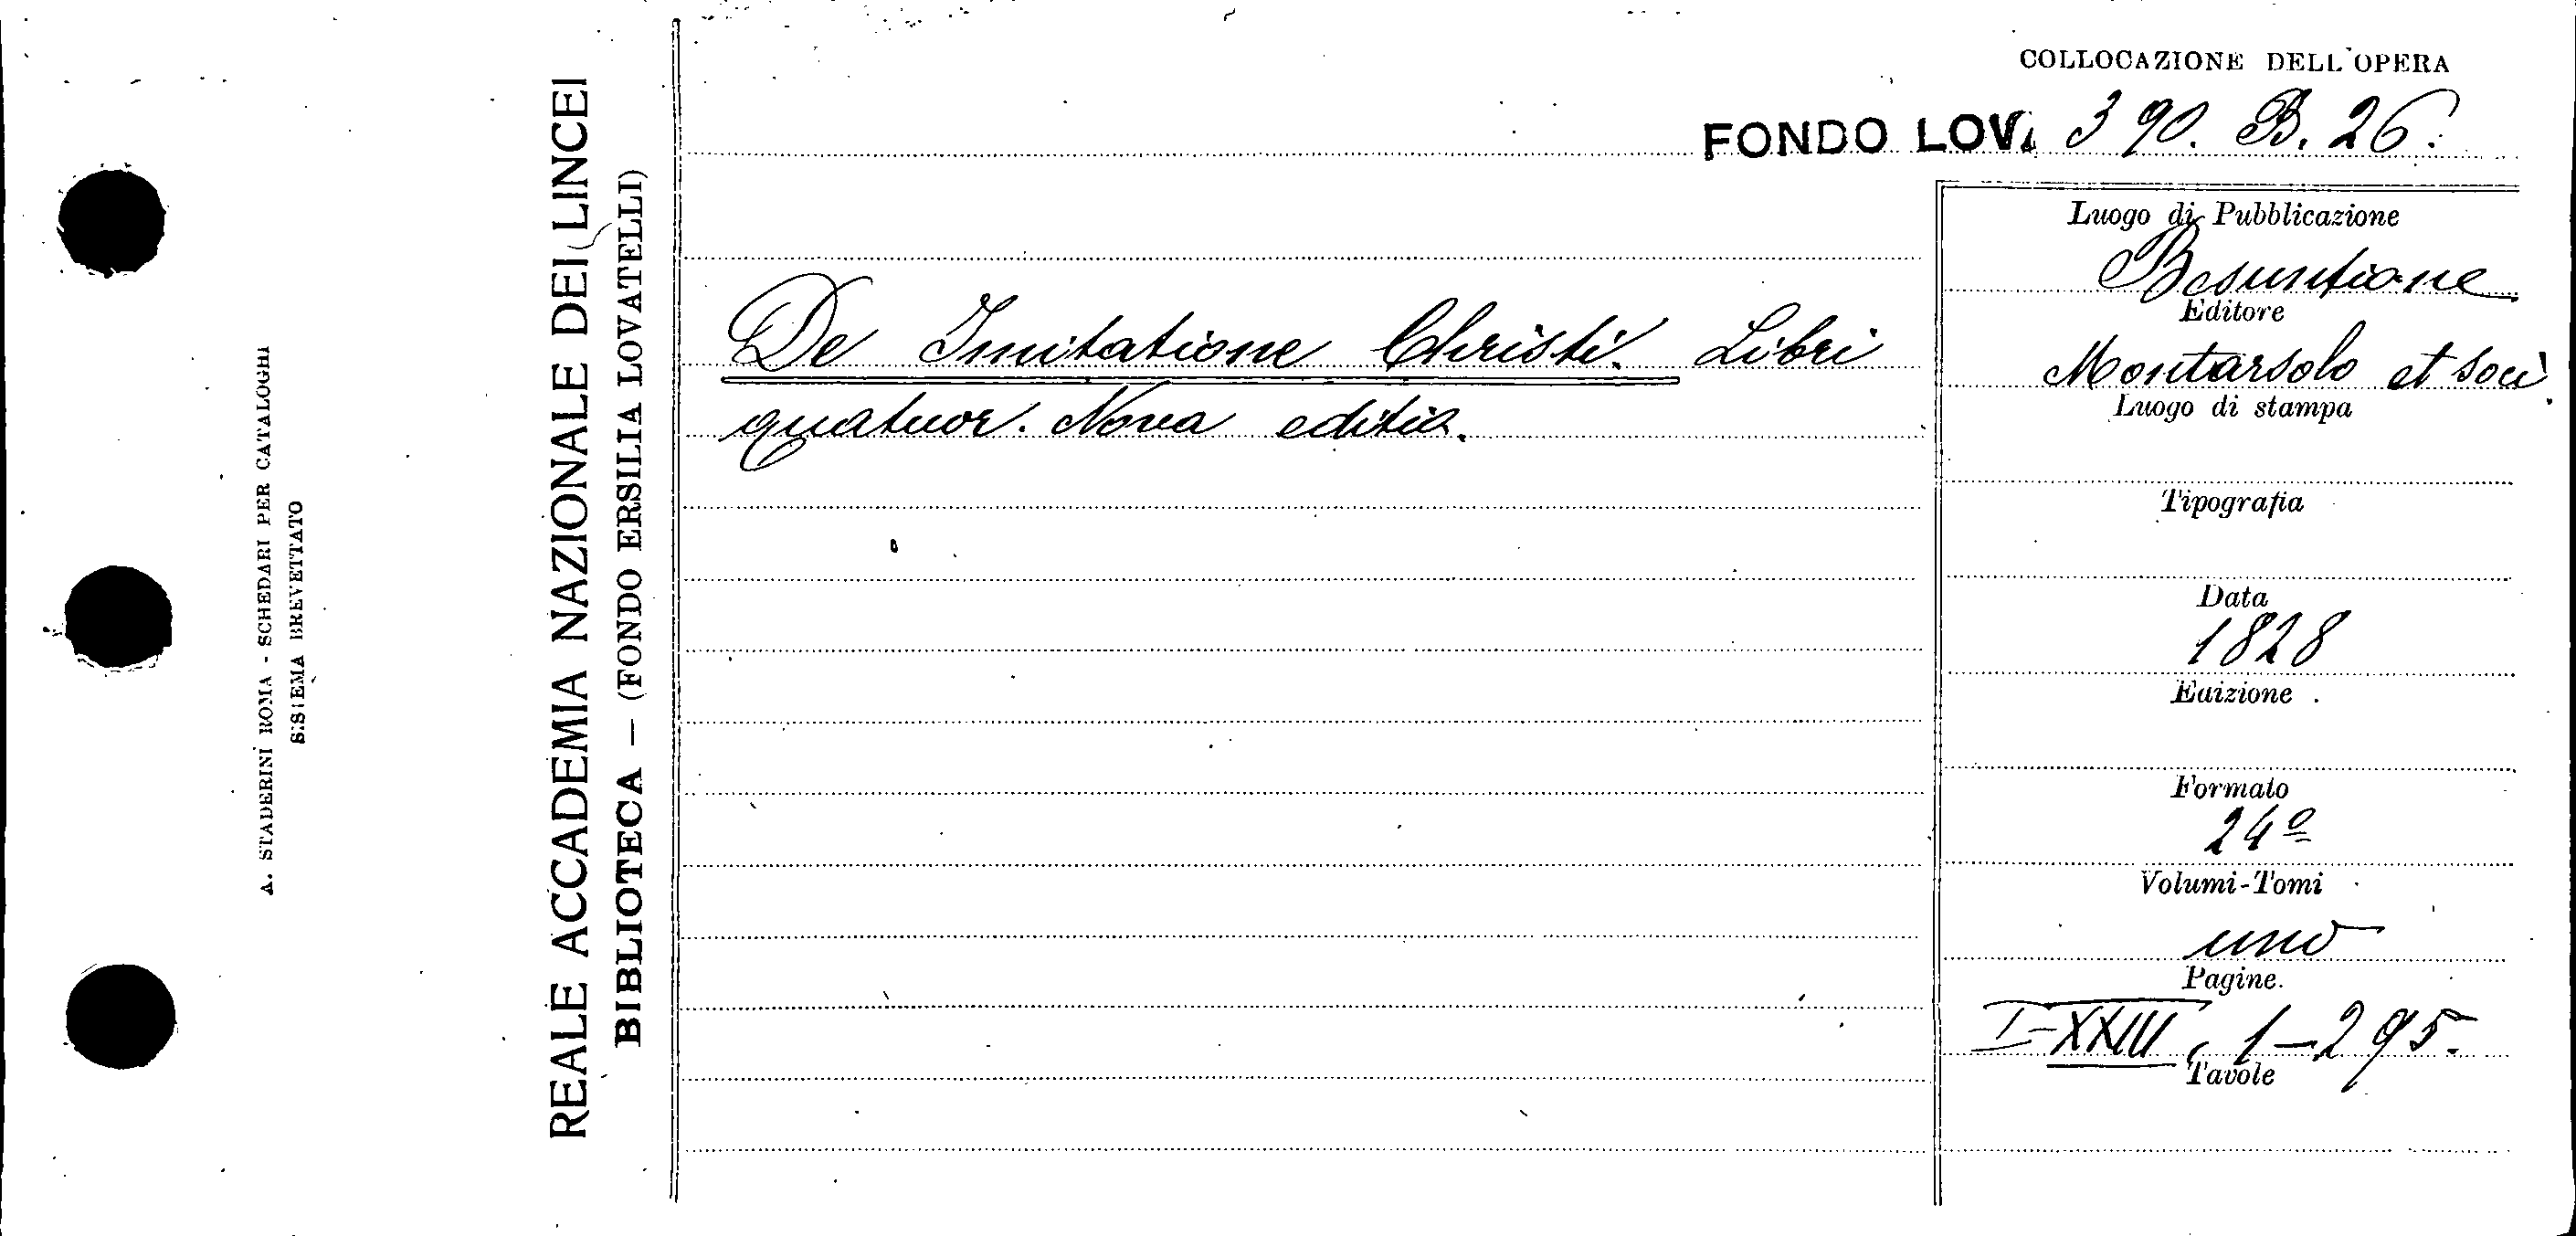 COLLOCAZIONE DELL'OPERA
FONDO LOV. 390. B. 26.
De Imitatione Christi. Libri
quatuor. Nova editio.
Luogo di Pubblicazione
Besuntione
Editore
Montarsolo et soci
Luogo di stampa
Tipografia
Data
1828
Edizione
Formato
24º
Volumi-Tomi
uno
Pagine.
I-XXIII, 1-295.
Tavole
REALE ACCADEMIA NAZIONALE DEI LINCEI
BIBLIOTECA — (FONDO ERSILIA LOVATELLI)
A. STADERINI ROMA - SCHEDARI PER CATALOGHI
SISTEMA BREVETTATO